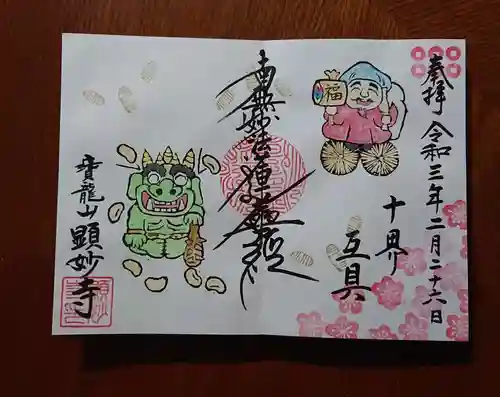 奉拝 令和三年二月二十六日
福
十界
互具
南無妙法蓮華経
寳龍山 顕妙寺